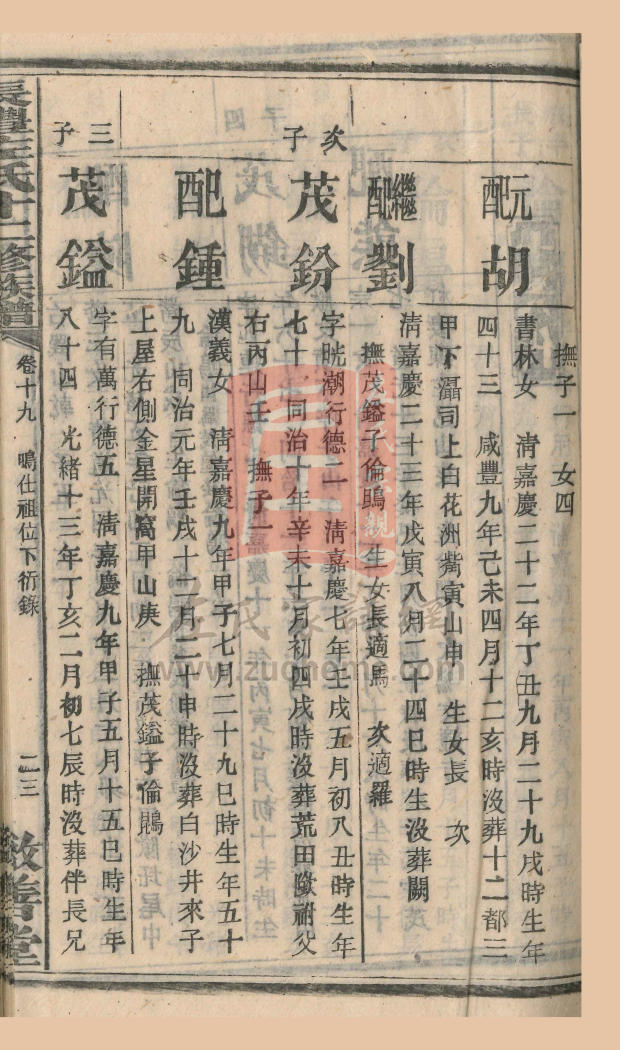 撫子一 女四
元配胡
書林女 淸嘉慶二十二年丁丑九月二十九戌時生年
四十三 咸豐九年己未四月十二亥時沒葬十二都三
甲下灄司上白花洲觜寅山申 生女長 次
繼配劉
淸嘉慶二十三年戊寅八月二十四巳時生沒葬闕
撫茂鎰子倫鴫 生女長適馬 次適羅
次子
茂鈖
字晄潮行德二 淸嘉慶七年壬戌五月初八丑時生年
七十 同治十年辛未十月初四戌時沒葬荒田墩祔父
右丙山壬 撫子一
配鍾
漢義女 淸嘉慶九年甲子七月二十九巳時生年五十
九 同治元年壬戌十二月二十申時沒葬白沙井來子
上屋右側金星開窩甲山庚 撫茂鎰子倫鵙
三子
茂鎰
字有萬行德五 淸嘉慶九年甲子五月十五巳時生年
八十四 光緒十三年丁亥二月初七辰時沒葬伴長兄
長灃左氏十二修族譜 卷十九 鳴仕祖位下衍錄 二三 敘善堂
左氏家譜網
www.zuonems.com